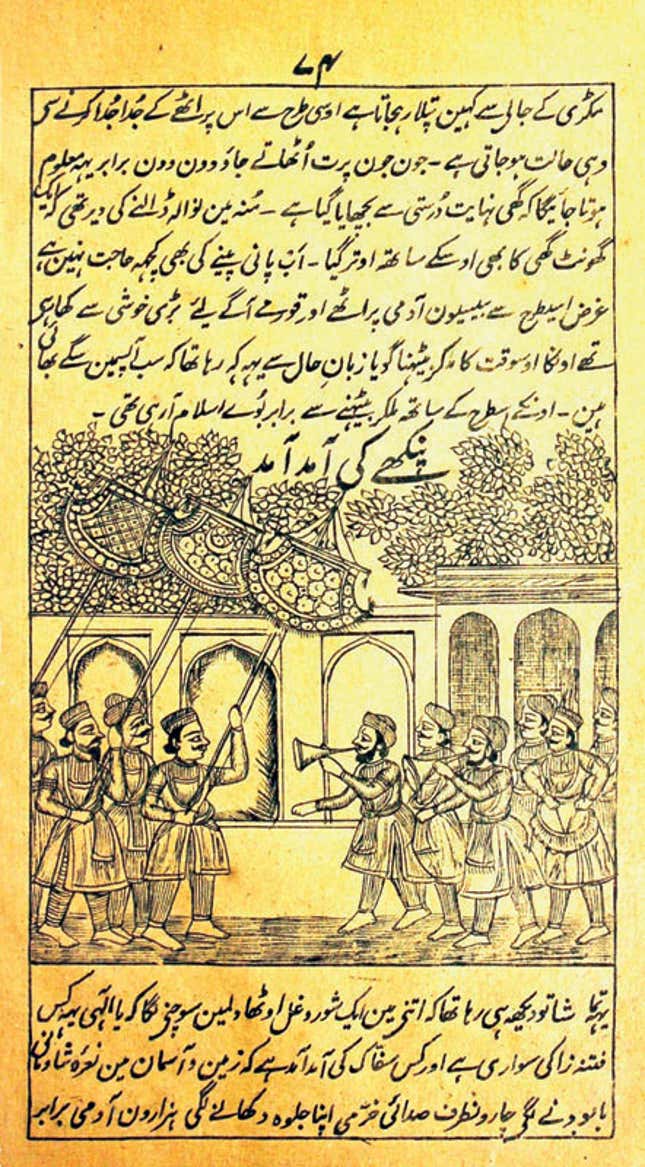 ۷۴
مکڑی کے جالی سے کہین پتلا رہجاتا ہے اوسی طرح سے اس پراٹھے کے جُدا جُدا کرنے سی
وہی حالت ہوجاتی ہے ۔ جون جون پرت اُٹھاتے جاؤ وون وون برابر یہہ معلوم
ہوتا جائیگا کہ گھی نہایت دُرستی سے بچھایا گیا ہے ۔ مُنہ مین نوالہ ڈالنے کی دیر تھی کہ ایک
گھونٹ گھی کا بھی اوسکے ساتھہ اوتر گیا ۔ اَب پانی پینے کی بھی کچہہ حاجت نہین ہے
غرض اسیطرح سے بیسیون آدمی پراٹھے اور قورمے آگے لیے بڑی خوشی سے کھا رہی
تھے اونکا اوسوقت کا ملکر بیٹہنا گویا زبانِ حال سے یہہ کہ رہا تھا کہ سب آپسمین سگے بھائی
ہین ۔ اونکے اسطرح کے ساتھہ ملکر بیٹہنے سے برابر بُوے اسلام آ رہی تھی ۔
پنکھے کی آمد آمد
یہہ تماشا تو دیکھہ ہی رہا تھا کہ اتنی مین ایک شور و غل اوٹھا دلمین سوچنی لگا کہ یا الٰہی یہہ کس
فتنہ زا کی سواری ہے اور کس سفاک کی آمد آمد ہے کہ زمین و آسمان مین نعرہ شادمانی
بلند ہونے لگی چارونطرف صدائی خرّمی اپنا جلوہ دکھانے لگی ہزارون آدمی برابر